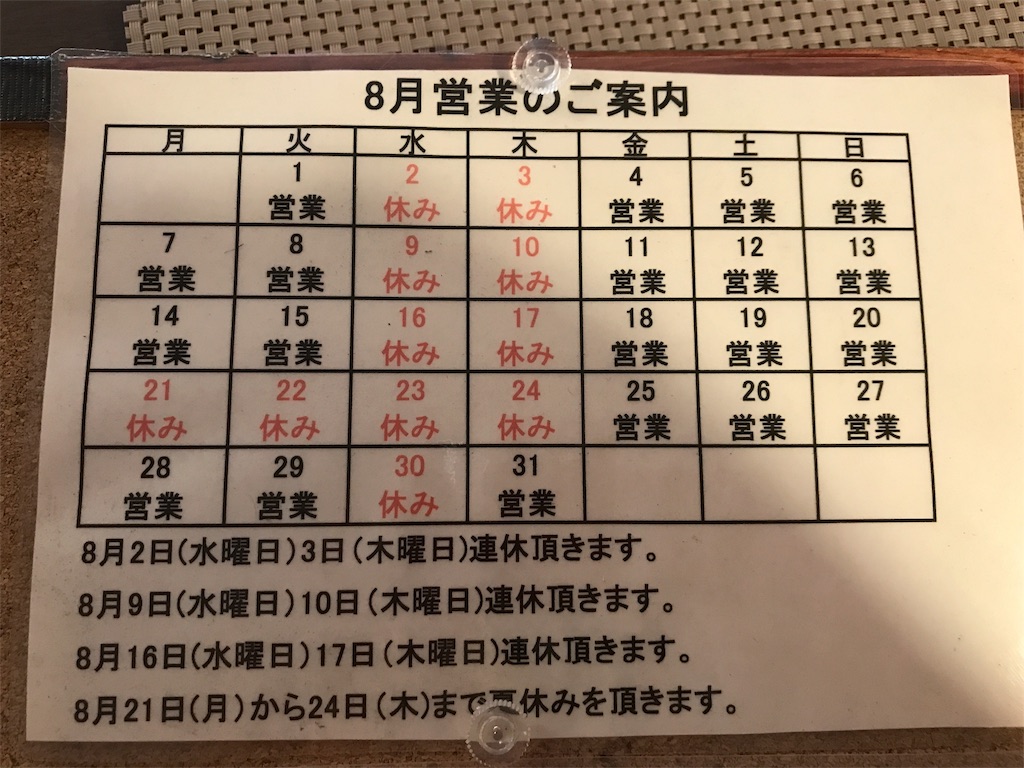 8月営業のご案内
月 火 水 木 金 土 日
1 2 3 4 5 6
営業 休み 休み 営業 営業 営業
7 8 9 10 11 12 13
営業 営業 休み 休み 営業 営業 営業
14 15 16 17 18 19 20
営業 営業 休み 休み 営業 営業 営業
21 22 23 24 25 26 27
休み 休み 休み 休み 営業 営業 営業
28 29 30 31
営業 営業 休み 営業
8月2日(水曜日)3日(木曜日)連休頂きます。
8月9日(水曜日)10日(木曜日)連休頂きます。
8月16日(水曜日)17日(木曜日)連休頂きます。
8月21日(月)から24日(木)まで夏休みを頂きます。